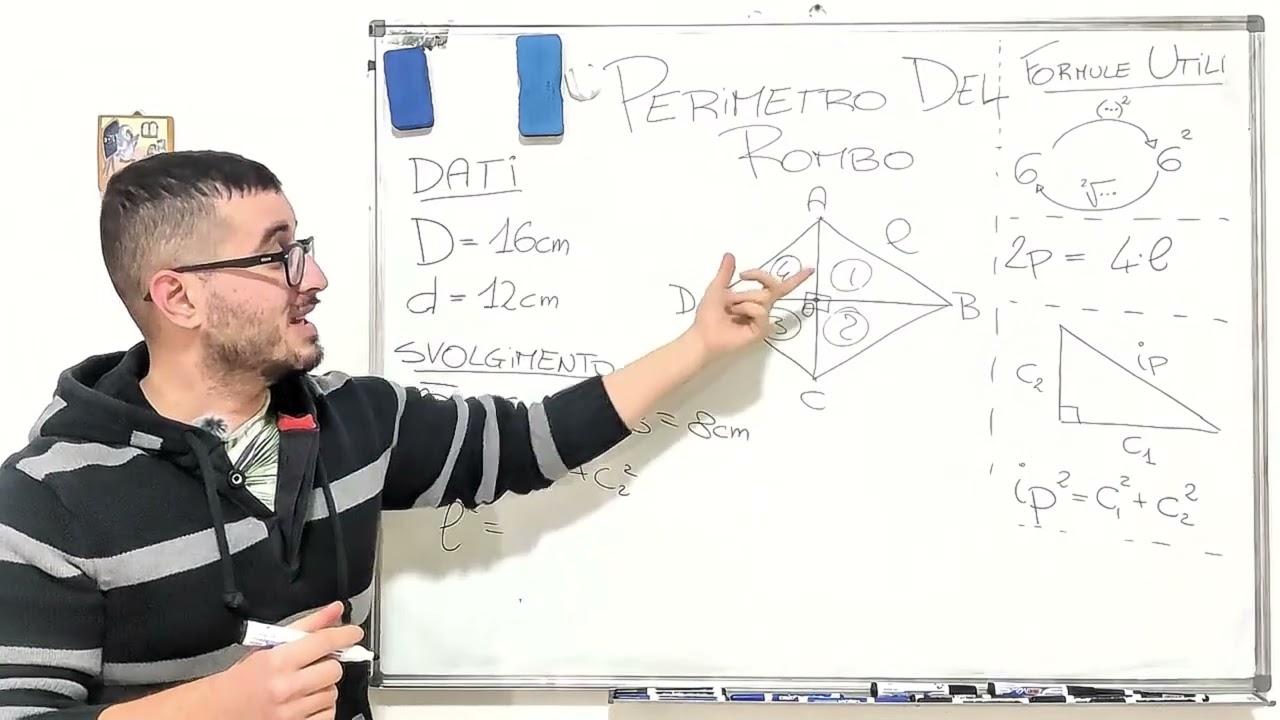 PERIMETRO DEL
ROMBO
DATI
D = 16cm
d = 12cm
SVOLGIMENTO
= 8cm
+ C₂²
ℓ² =
A
ℓ
B
C
D
O
1
2
3
4
FORMULE UTILI
(...)²
6
6²
²√...
2p = 4·ℓ
C₂
ip
C₁
ip² = C₁² + C₂²